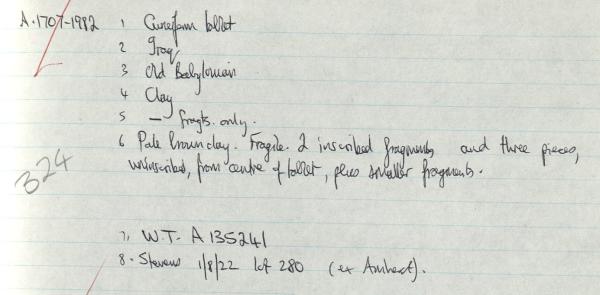 A.1707-1982 1 Cuneiform tablet
2 Iraq
3 Old Babylonian
4 Clay
5 — fragts. only.
6 Pale brown clay. Fragile. 2 inscribed fragments and three pieces,
uninscribed, from centre of tablet, plus smaller fragments.
324
7, W.T- A 135241
8 - Stevens 1/8/22 lot 280 (ex Amherst).